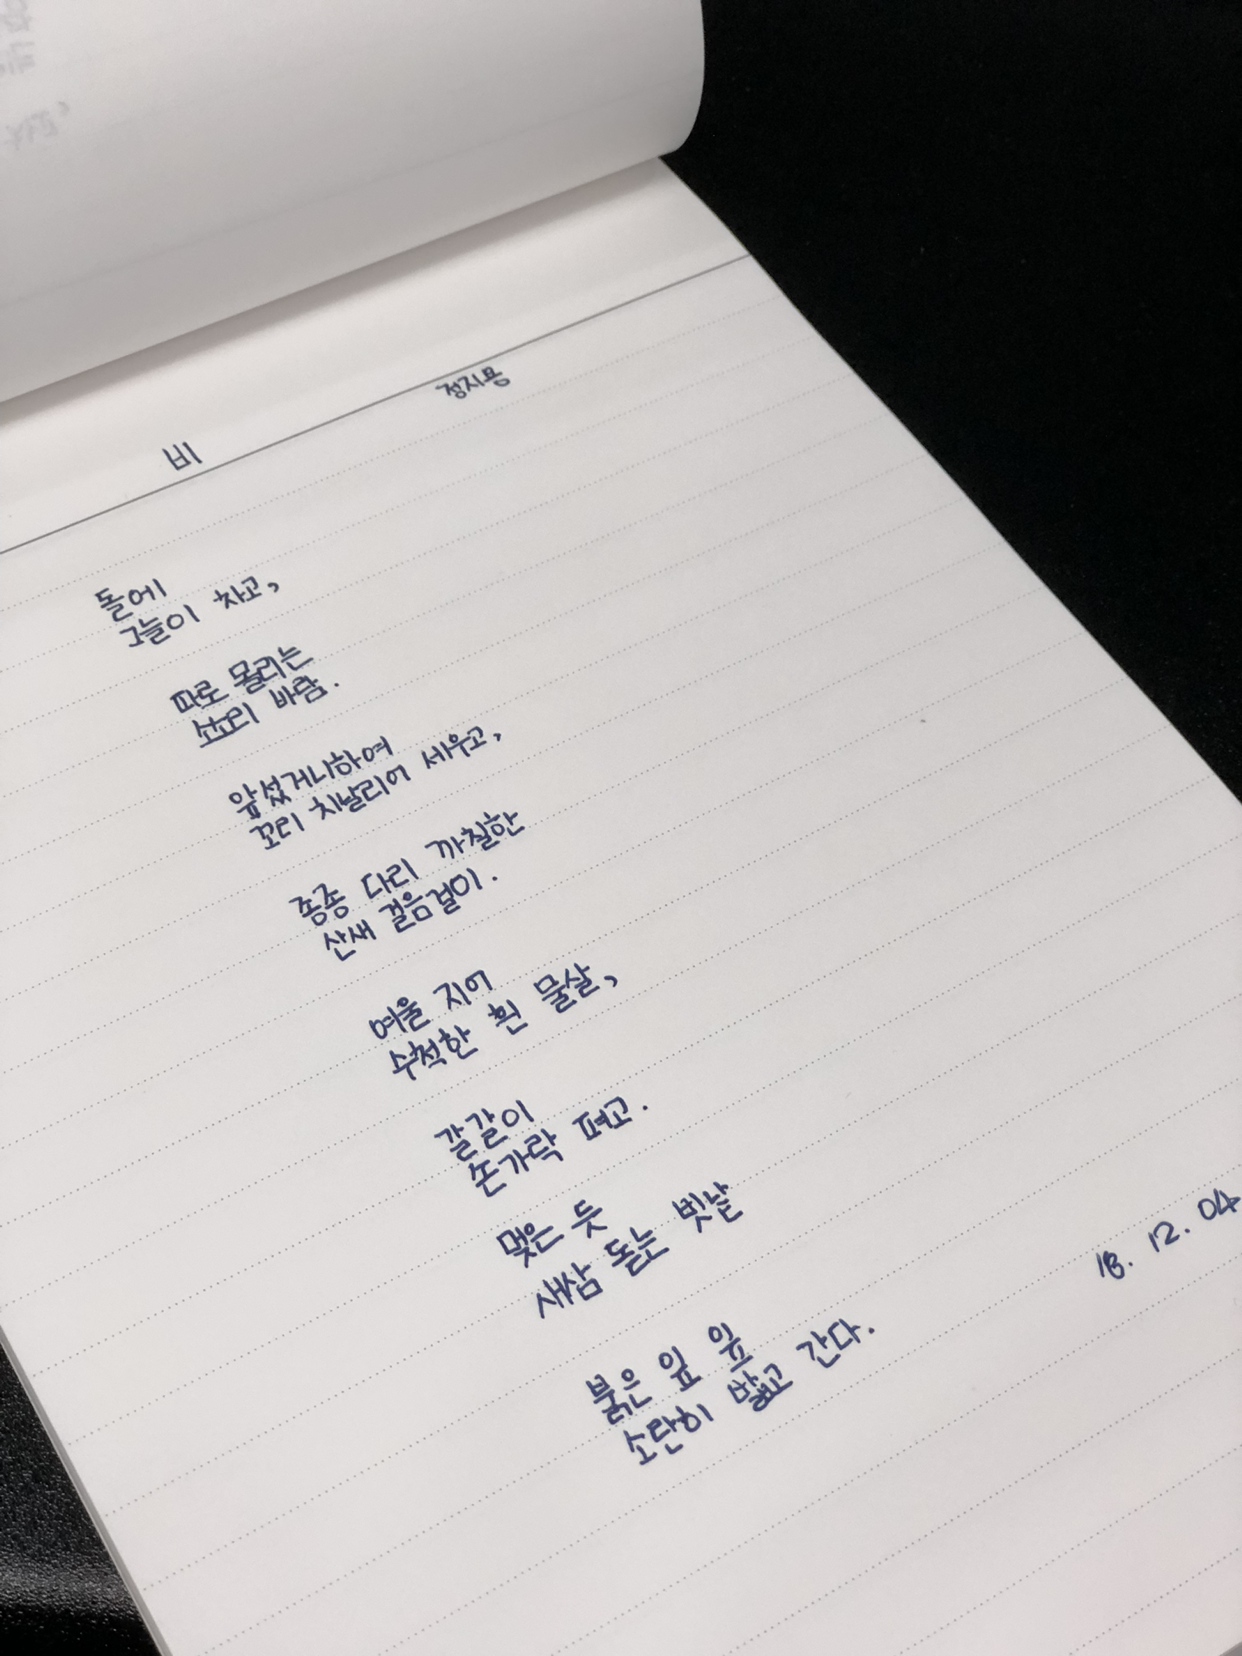 비
정지용
돌에
그늘이 차고,
따로 몰리는
소소리 바람.
앞섰거니하여
꼬리 치날리어 세우고,
종종 다리 까칠한
산새 걸음걸이.
여울 지어
수척한 흰 물살,
갈갈이
손가락 펴고.
멎은 듯
새삼 돋는 빗낱
붉은 잎 잎
소란히 밟고 간다.
18. 12. 04